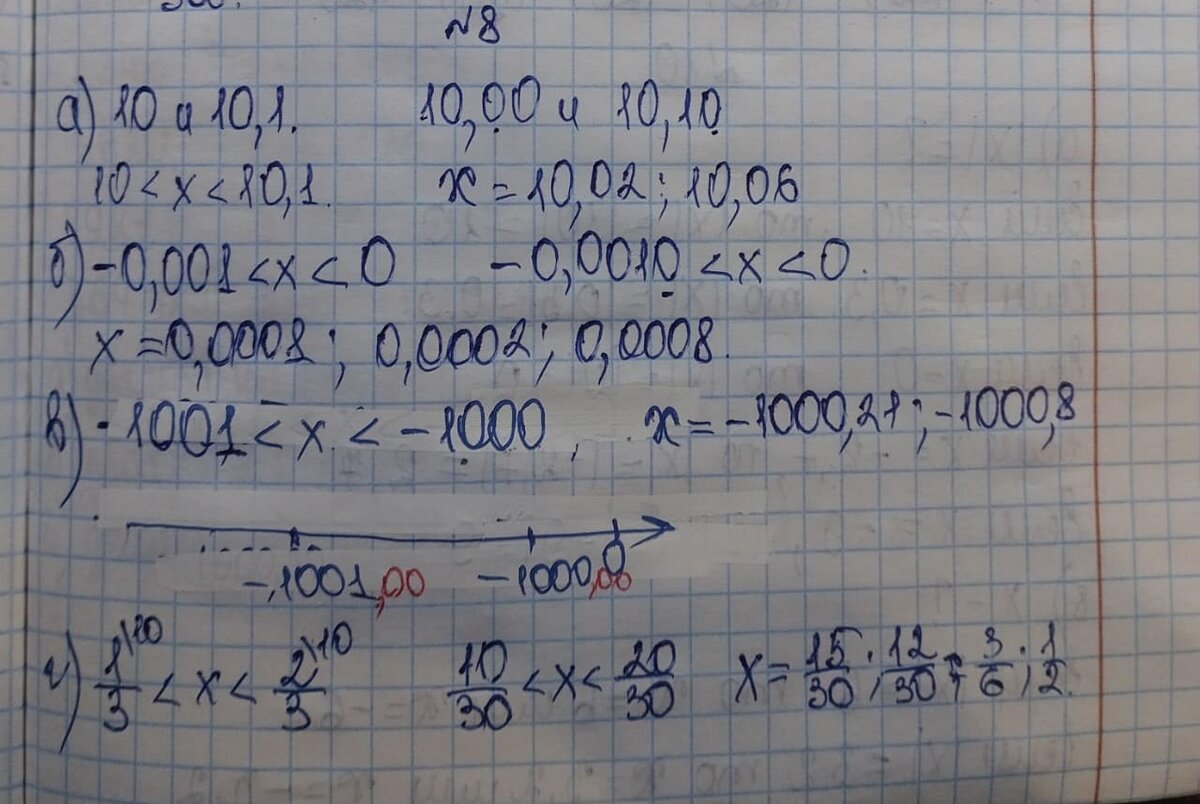 №8
а) 10 и 10,1. 10,00 и 10,10
10 < x < 10,1. x = 10,02; 10,06
б) -0,001 < x < 0 -0,0010 < x < 0.
x = 0,0001; 0,0002; 0,0008.
в) -1001 < x < -1000, x = -1000,21; -1000,8
0
-1001,00 -1000,00
г) 1/3 \10 < x < 2/3 \10 10/30 < x < 20/30 x = 15/30; 12/30; 3/6; 1/2.